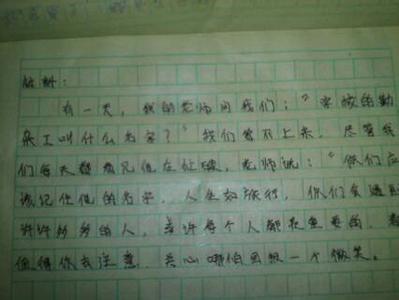 材料:
有一天,我的老师问我们:"学校的勤
杂工叫什么名字?"我们答不上来,尽管我
们每天都看见他在忙碌,老师说:"你们应
该记住他的名字,人生如旅行,你们会遇到
许许多多的人,或许每个人都是重要的,都
值得你去注意、关心哪怕回报一个微笑。